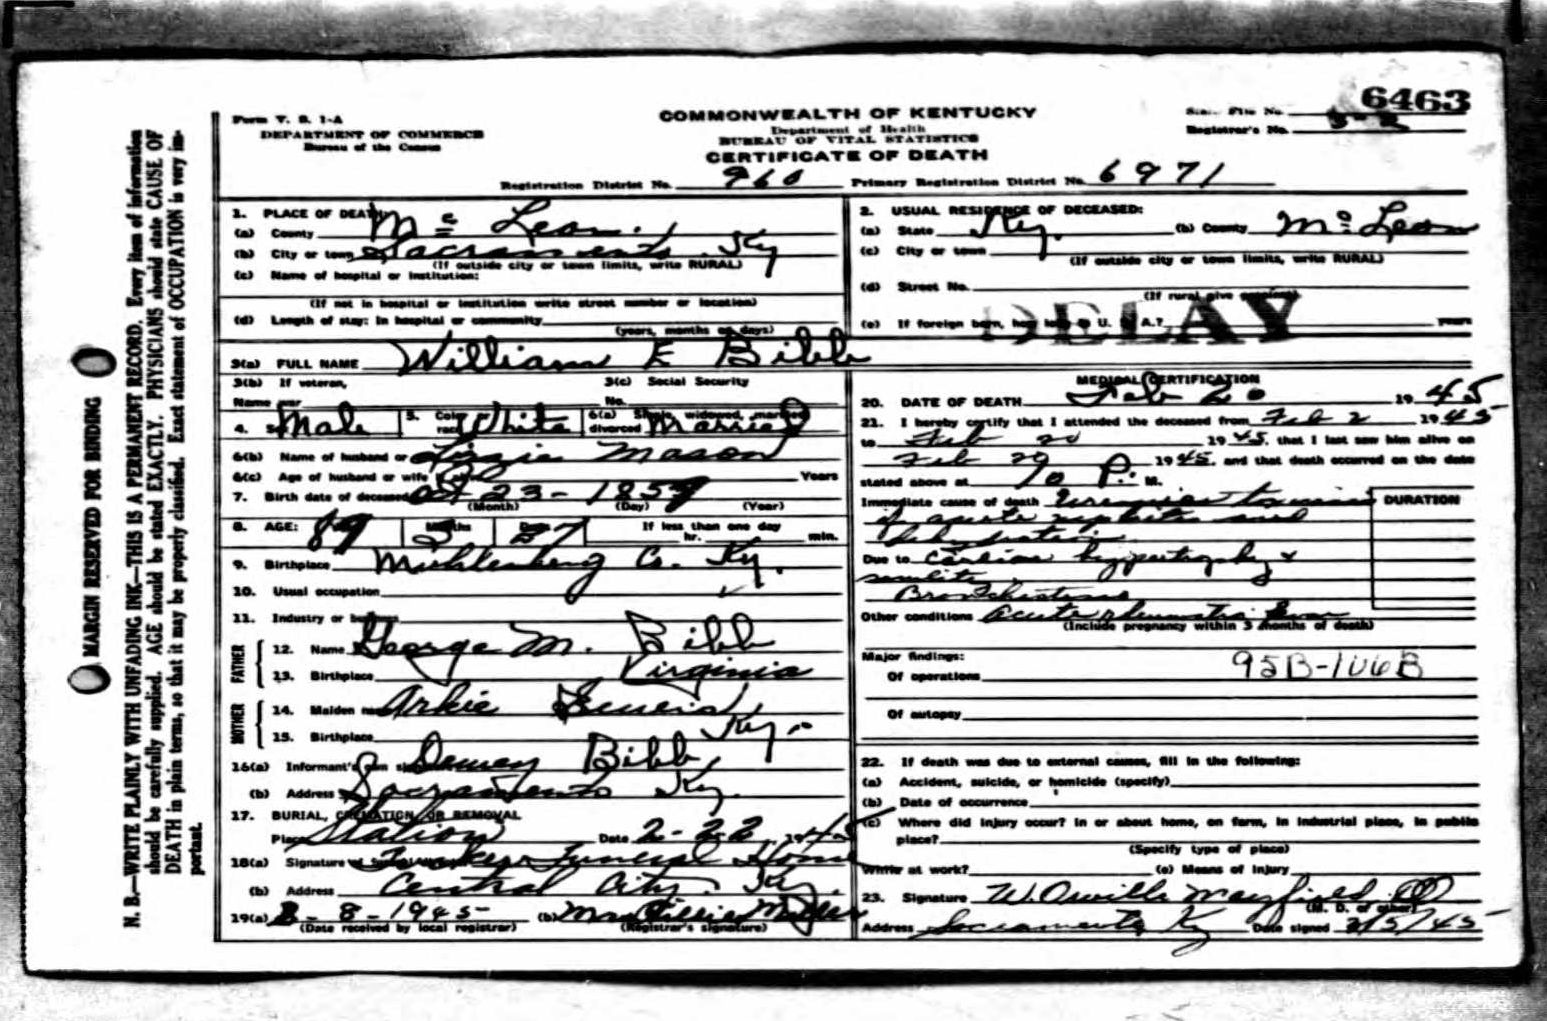 6463
Form V. S. 1-A
DEPARTMENT OF COMMERCE
Bureau of the Census
COMMONWEALTH OF KENTUCKY
Department of Health
BUREAU OF VITAL STATISTICS
CERTIFICATE OF DEATH
State File No.
Registrar's No.
Registration District No. 960 Primary Registration District No. 6971
MARGIN RESERVED FOR BINDING
N. B.—WRITE PLAINLY WITH UNFADING INK—THIS IS A PERMANENT RECORD. Every item of information
should be carefully supplied. AGE should be stated EXACTLY. PHYSICIANS should state CAUSE OF
DEATH in plain terms, so that it may be properly classified. Exact statement of OCCUPATION is very im-
portant.
1. PLACE OF DEATH:
(a) County Mc Lean.
(b) City or town Sacramento Ky
(If outside city or town limits, write RURAL)
(c) Name of hospital or institution:
(If not in hospital or institution write street number or location)
(d) Length of stay: In hospital or community
(years, months or days)
2. USUAL RESIDENCE OF DECEASED:
(a) State Ky. (b) County Mc Lean
(c) City or town
(If outside city or town limits, write RURAL)
(d) Street No.
(If rural give
(e) If foreign born, how long in U. S. A.? years
DELAY
3(a) FULL NAME William E Bibb
3(b) If veteran, 3(c) Social Security
Name war No.
4. Sex Male 5. Color or race White 6(a) Single, widowed, married, divorced Married
6(b) Name of husband or Lizzie Mason
6(c) Age of husband or wife Years
7. Birth date of deceased Oct 23-
(Month) (Day) (Year)
8. AGE: 89 Months 3 Days 27 If less than one day
hr. min.
9. Birthplace Muhlenberg Co. Ky.
10. Usual occupation
11. Industry or business
FATHER
12. Name George M. Bibb
13. Birthplace Virginia
MOTHER
14. Maiden name Arkie
15. Birthplace Ky.
16(a) Informant's own signature Dewey Bibb
(b) Address Sacramento Ky.
17. BURIAL, CREMATION, OR REMOVAL
Place Station Date 2-22, 1945
18(a) Signature of Funeral Home
(b) Address Central City. Ky.
19(a) 8-1945 (b) Mrs
(Date received by local registrar) (Registrar's signature)
MEDICAL CERTIFICATION
20. DATE OF DEATH Feb 20 1945
21. I hereby certify that I attended the deceased from Feb 2 1945
to Feb 20 1945, that I last saw him alive on
Feb 20 1945, and that death occurred on the date
stated above at 10 P. M.
Immediate cause of death Uremia DURATION
of acute nephritis and
dehydration
Due to Cardiac hypertrophy &
senility
Other conditions acute rheumatic
(Include pregnancy within 3 months of death)
Major findings:
Of operations 95B-106B
Of autopsy
22. If death was due to external causes, fill in the following:
(a) Accident, suicide, or homicide (specify)
(b) Date of occurrence
(c) Where did injury occur? In or about home, on farm, in industrial place, in public
place?
(Specify type of place)
While at work? (e) Means of Injury
23. Signature W. Orville Mayfield MD
(M. D. or other)
Address Sacramento Ky Date signed 3/5/45